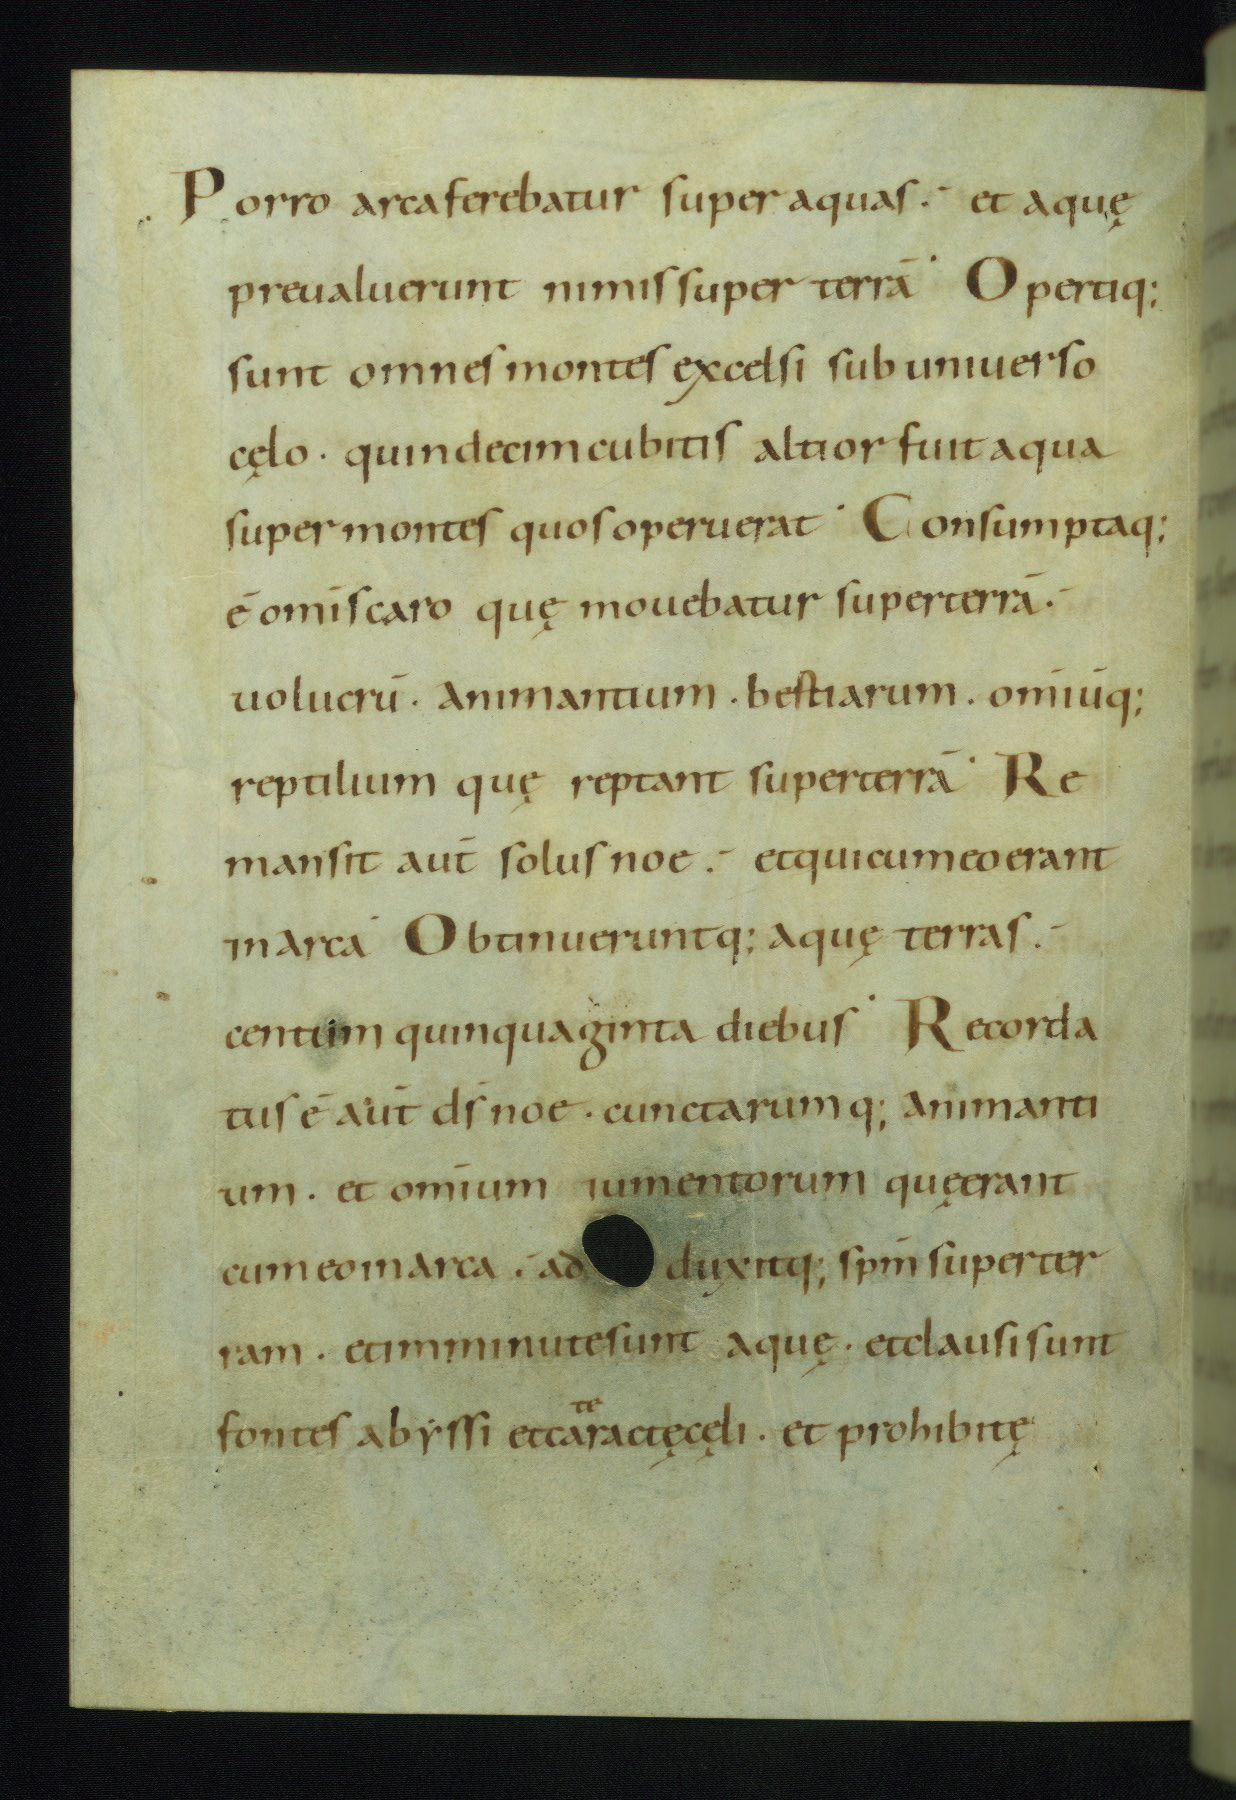 Porro arca ferebatur super aquas. et aquę
preualuerunt nimis super terrā. Opertiq;
sunt omnes montes excelsi sub uniuerso
cęlo. quindecim cubitis altior fuit aqua
super montes quos operuerat. Consumptaq;
ē omīs caro quę mouebatur super terrā.
uolucrū. animantium. bestiarum. omīūq;
reptilium quę reptant super terrā. Re
mansit aut̄ solus noe. et qui cum eo erant
in arca. Obtinueruntq; aquę terras.
centum quinquaginta diebus. Recorda
tus ē aut̄ ds̄ noe. cunctarumq; animanti
um. et omīum iumentorum quę erant
cum eo in arca. ad duxitq; spm̄ super ter
ram. et imminute sunt aquę. et clausi sunt
fontes abẏssi et cataractę cęli. et prohibitę